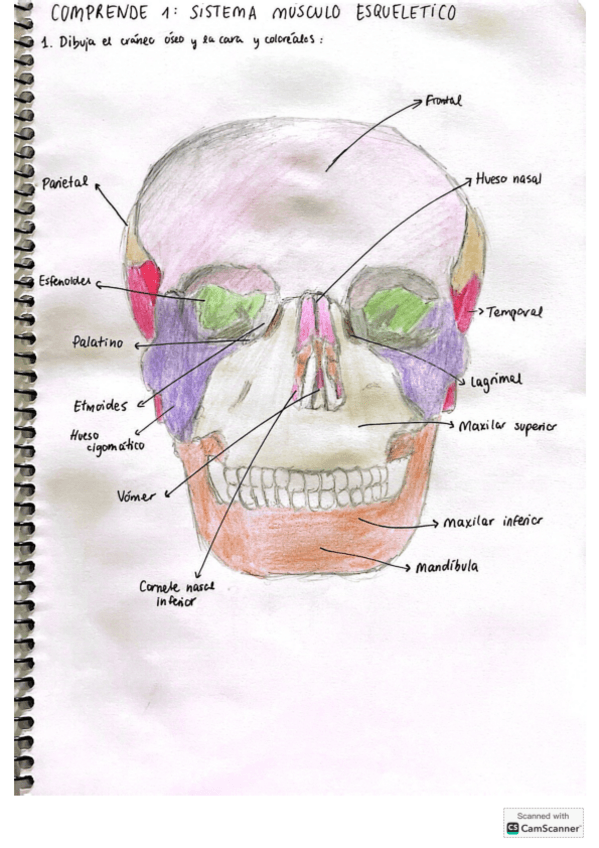 COMPRENDE 1: SISTEMA MUSCULO ESQUELETICO
1. Dibuja el cráneo óseo y la cara y coloréalos:
Frontal
Parietal
Hueso nasal
Esfenoides
Temporal
Palatino
Lagrimal
Etmoides
Maxilar superior
Hueso
cigomático
Vómer
Maxilar inferior
Mandíbula
Cornete nasal
inferior
Scanned with
CS CamScanner